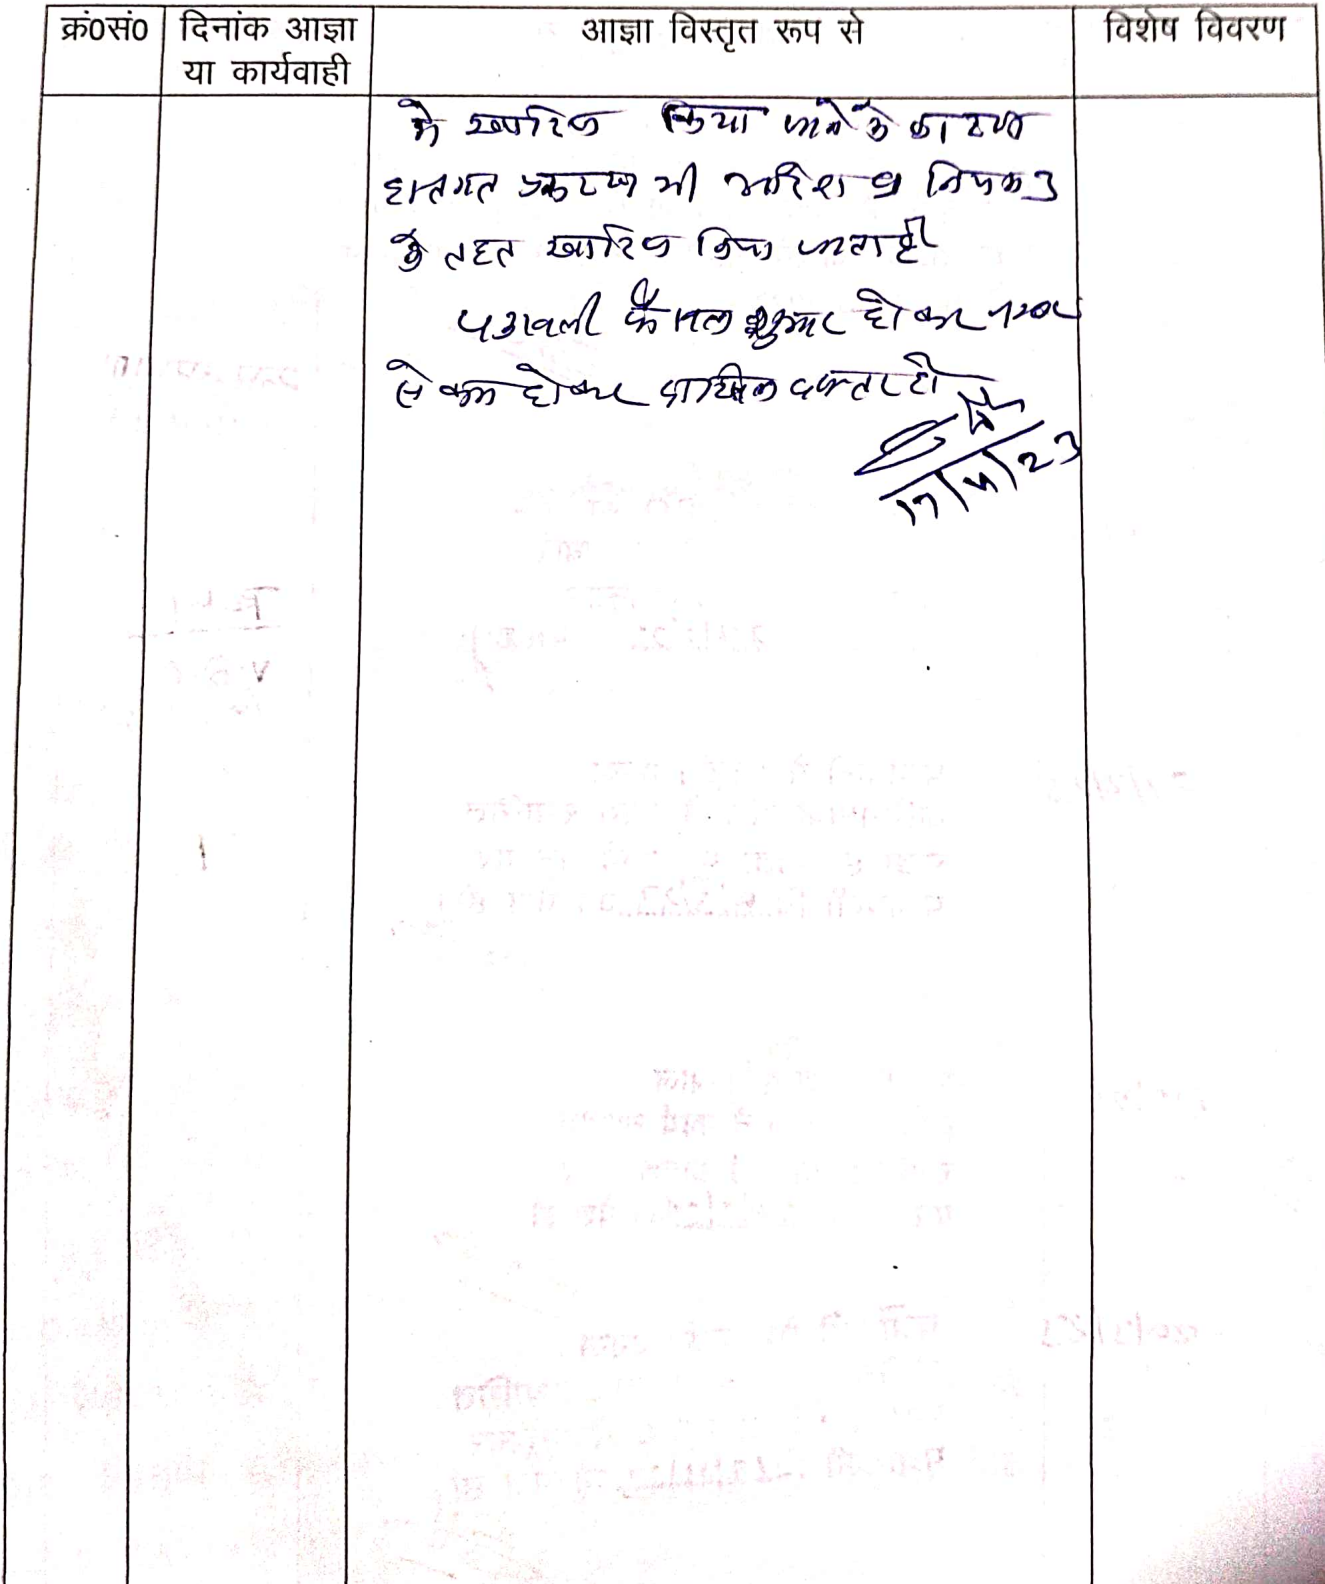 क्रं0सं0
दिनांक आज्ञा
या कार्यवाही
आज्ञा विस्तृत रूप से
विशेष विवरण
मे खारिज किया जाने के कारण
हस्तगत प्रकरण भी आदेश 9 नियम 3
के तहत खारिज किया जाता है।
पत्रावली फैसल शुमार होकर नम्बर
से कम होकर दाखिल दफ्तर हो
17/4/23